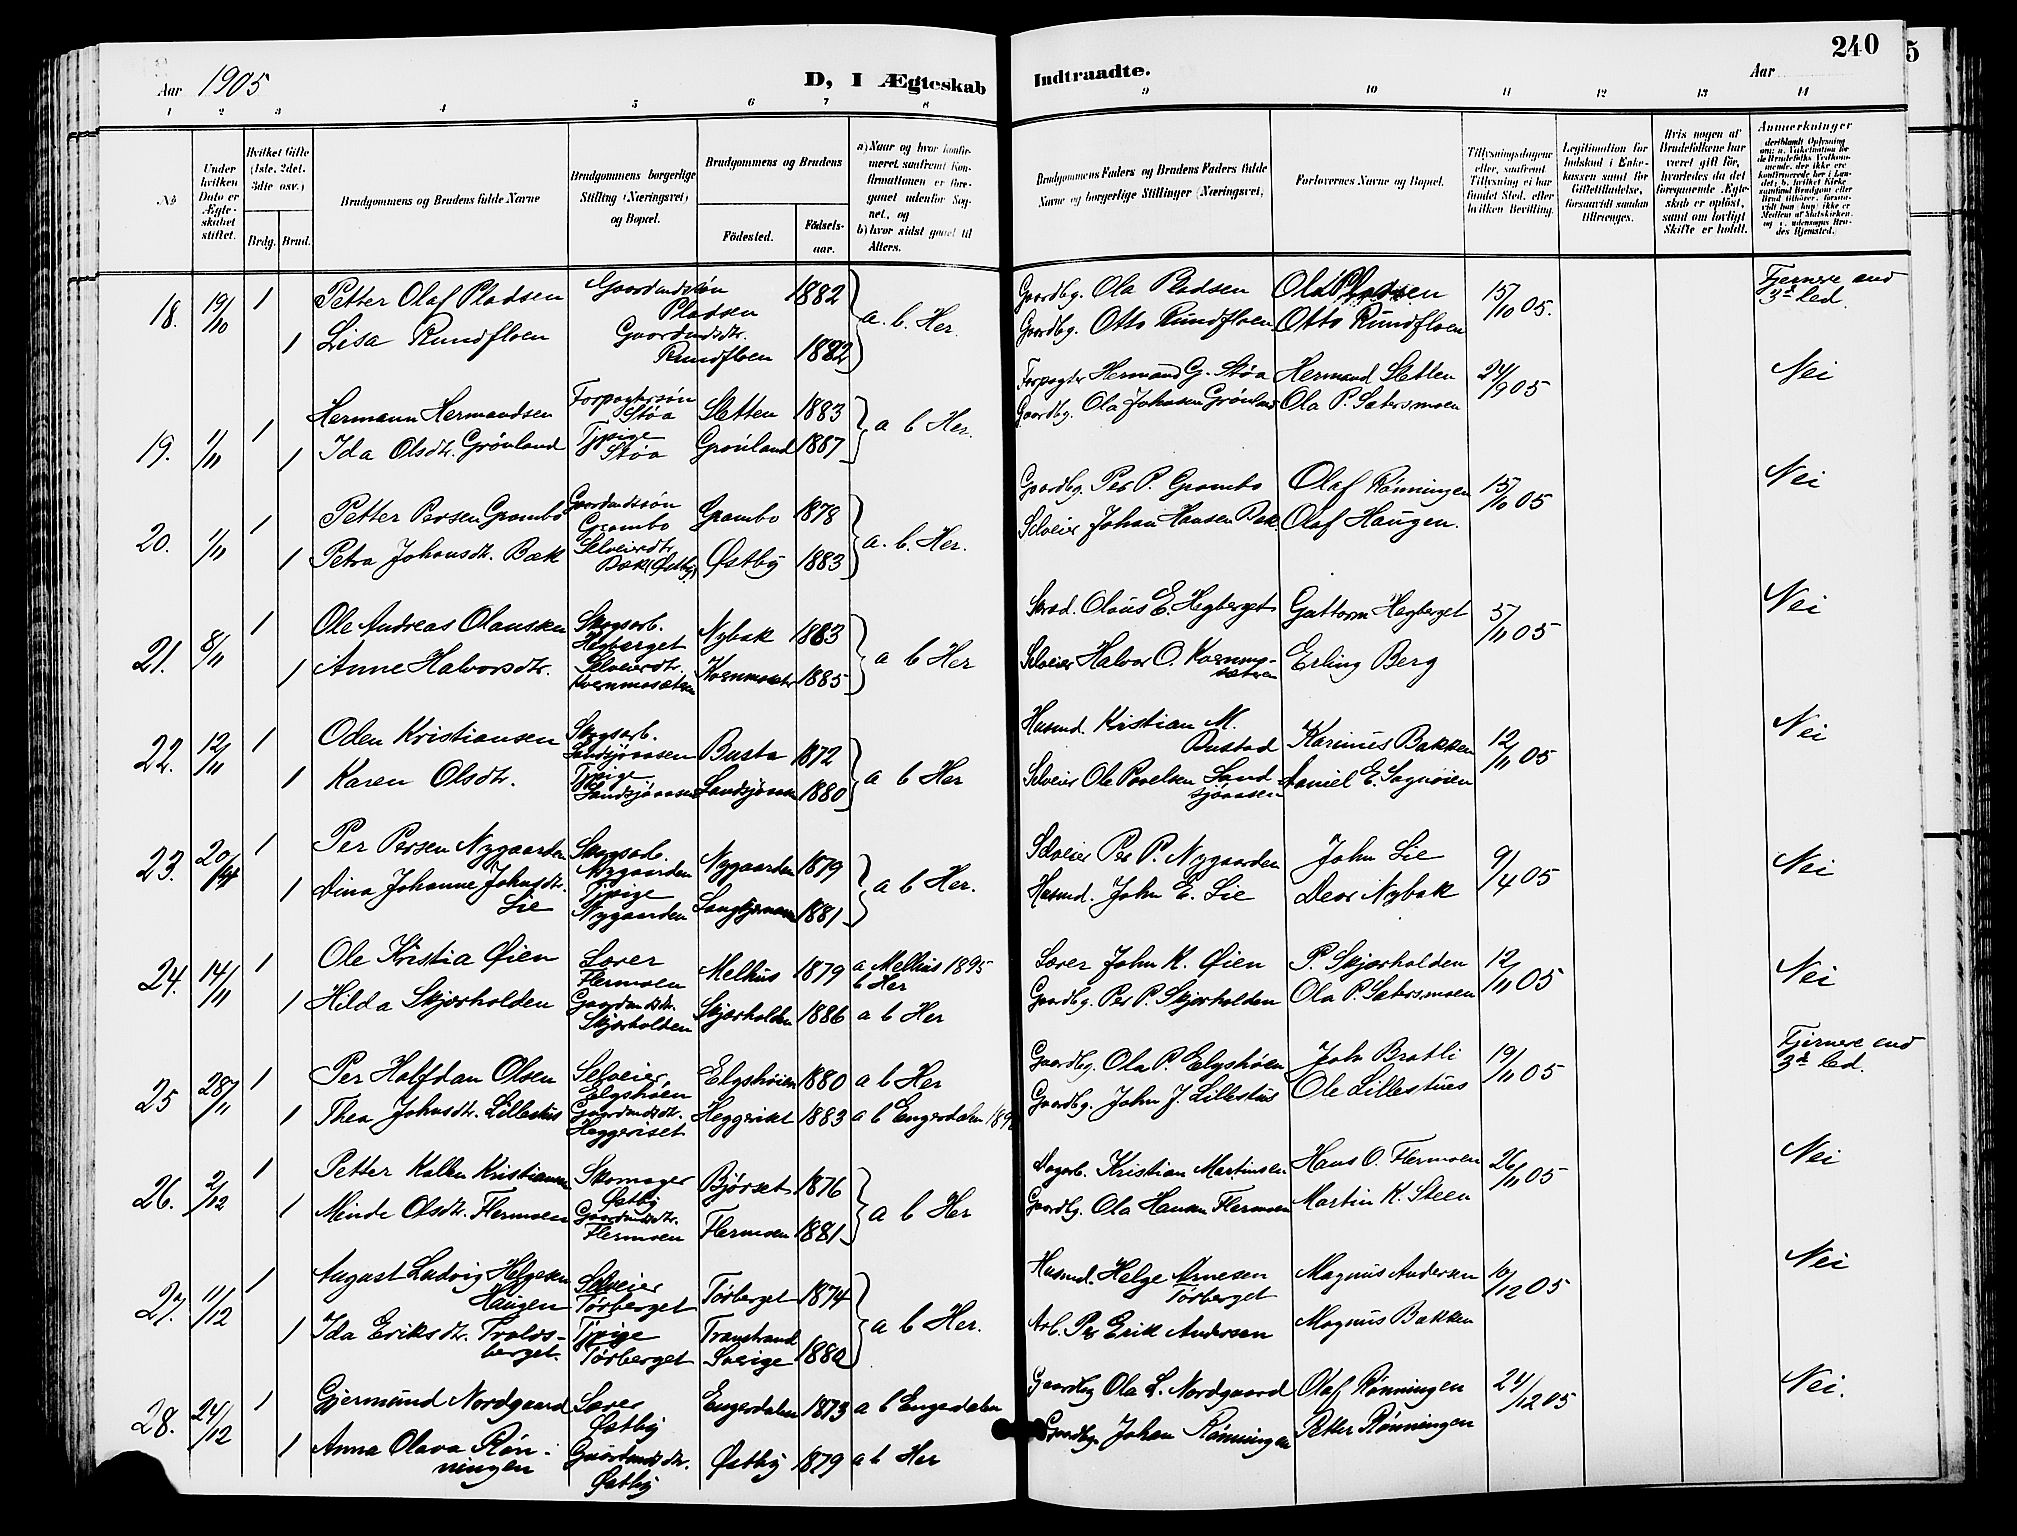 Aar 1905
D, I Ægteskab
Indtraadte.
Aar
240
5
1 2 3 4 5 6 7 8 9 10 11 12 13 14
No
Under hvilken Dato er Ægteskabet stiftet.
Hvilket Gifte (1ste. 2det. 3die osv.)
Brdg. Brud.
Brudgommens og Brudens fulde Navne
Brudgommens borgerlige Stilling (Næringsvei) og Bopæl.
Brudgommens og Brudens
Födested.
Födselsaar.
a) Naar og hvor konfirmeret, samfremt Konfirmationen er foregaaet udenfor Sognet, og
b) hvor sidst gaaet til Alters.
Brudgommens Faders og Brudens Faders fulde Navne og borgerlige Stillinger (Næringsvei)
Forlovernes Navne og Bopæl.
Tillysningsdagene eller, saafremt Tillysning ei har fundet Sted, efter hvilken Bevilling.
Legitimation for Indskud i Enkekassen samt for Giftetilladelse, forsaavidt saadan tiltrænges.
Hvis nogen af Brudefolkene har været gift för, hvorledes da det foregaaende Ægteskab er oplöst, samt om lovligt Skifte er holdt.
Anmærkninger
18. 19/10 1 Petter Olaf Pladsen Gaardmdssön Pladsen 1882 a. b. Her. Gaardbg. Ola Pladsen Ola Pladsen 15/10 05. Fjernere end 3d led.
1 Lisa Rundfloen Gaardmdsdtr. Rundfloen 1882 Gaardbg. Otto Rundfloen Otto Rundfloen
19. 1/11 1 Hermann Hermandsen Forpagtersön Støa Sletten 1883 a b Her. Forpagter Hermand G. Støa Hermand Sletten 24/9 05 Nei
1 Ida Olsdtr. Grönland Tjpige Støa Grönland 1887 Gaardbg. Ola Johnsen Grönland Ola P. Sætersmoen
20. 1/11 1 Petter Persen Grambo Gaardmdssön Grambo Grambo 1878 a. b. Her. Gaardbg. Per P. Grambo Olaf Rönningen 15/10 05 Nei
1 Petra Johansdtr. Bæk Selveierdtr. Bæk (Østby) Østby 1883 Selveier Johan Hansen Bæk Olaf Haugen.
21. 8/11 1 Ole Andreas Olaussen Skogsarb. Hegberget Nybak 1883 a b Her Olaus E. Hegberget Guttorm Hegberget 5/11 05 Nei
1 Anne Halvorsdtr. Selveierdtr. 1885 Selveier Halvor O. Erling Berg
22. 12/11 1 Oden Kristiansen Skogsarb. Landsjöaasen 1872 a b Her Husmd. Kristian M. Karinus Bakken 12/11 05 Nei
1 Karen Olsdtr. Tjpige. Landsjöaasen Landsjöaasen 1880 Selveier Ole Povelsen Landsjöaasen Daniel E.
23. 20/4 1 Per Persen Nygaarden Skogsarb. Nygaarden Nygaarden 1879 a b Her. Selveier Per P. Nygaarden John Lie 9/4 05 Nei
1 Dina Johanne Johnsdtr. Lie Tjpige Nygaarden 1881 Husmd. John E. Lie Nybak
24. 14/11 1 Ole Kristia Øien Lærer Flermoen Melhus 1879 a Melhus 1895 b Her Lærer John K. Øien P. Skjærholden 12/11 05 Nei
1 Hilda Skjærholden Gaardmdsdtr. Skjærholden Skjærholden 1886 a b Her Gaardbg. Per P. Skjærholden Ola P. Sætersmoen
25 28/11 1 Per Halfdan Olsen Selveier Elgshöen Elgshöien 1880 a b Her Gaardbg. Ola P. Elgshöen John Bratli 19/11 05 Fjernere end 3d led.
1 Thea Johnsdtr. Lillestus Gaardmdsdtr. Heggeriset Heggeriset 1883 a b Engerdalen Gaardbg. John J. Lillestus Ole Lillestues
26. 2/12 1 Petter Kristiansen Skomager Østby Björset 1876 a b Her Dagarb. Kristian Martinsen Hans O. Flermoen 26/11 05 Nei
1 Minde Olsdtr. Flermoen Gaardmdsdtr. Flermoen Flermoen 1881 Gaardbg. Ola Hansen Flermoen Martin K. Steen
27. 11/12 1 August Ludvig Helgesen Haugen Selveier Törberget Törberget 1874 a b Her. Husmd. Helge Arnesen Törberget Magnus Andersen 10/12 05 Nei
1 Ida Eriksdtr. Troldsberget. Tjpige Törberget Transtrand Sverige 1880 Arb. Per Erik Andersen Magnus Bakken
28. 24/12 1 Gjermund Nordgaard Lærer Østby Engerdalen 1873 a b Engerdalen Gaardbg Ola L. Nordgaard Olaf Rönningen 24/12 05 Nei.
1 Anna Olava Rönningen Gaardmdsdtr. Østby Østby 1879 a b Her Gaardbg. Johan Rönningen Petter Rönningen